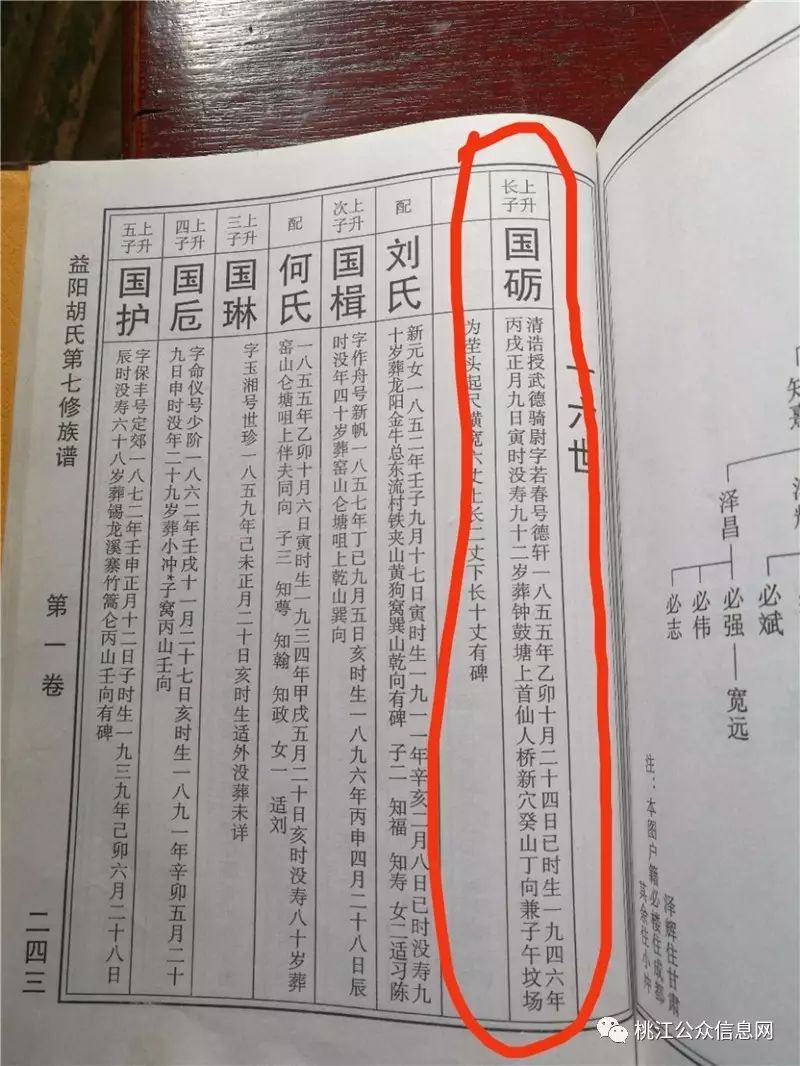 知嘉
泽昌
必斌
必强—宽远
必伟
必志
泽辉住甘肃
注：本图户籍必楼住成都
其余住小冲
一六世
上升
长子
国砺
清诰授武德骑尉字若春号德轩一八五五年乙卯十月二十四日巳时生一九四六年
丙戌正月九日寅时没寿九十二岁葬钟鼓塘上首仙人桥新穴癸山丁向兼子午坟场
为茔头起尺横宽六丈上长二丈下长十丈有碑
配
刘氏
新元女一八五二年壬子九月十七日寅时生一九一一年辛亥二月八日巳时没寿九
十岁葬龙阳金牛总东流村铁夹山黄狗窝巽山乾向有碑 子二 知福 知寿 女二适习陈
上升
次子
国楫
字作舟号新帆一八五七年丁巳九月五日亥时生一八九六年丙申四月二十八日辰
时没年四十岁葬窑山仑塘咀上乾山巽向
配
何氏
一八五五年乙卯十月六日寅时生一九三四年甲戌五月二十日亥时没寿八十岁葬
窑山仑塘咀上伴夫同向 子三 知萼 知翰 知政 女一 适刘
上升
三子
国琳
字玉湘号世珍一八五九年己未正月二十日亥时生适外没葬未详
上升
四子
国卮
字命仪号少阶一八六二年壬戌十一月二十七日亥时生一八九一年辛卯五月二十
九日申时没年二十九岁葬小冲子窝丙山壬向
上升
五子
国护
字保丰号定郊一八七二年壬申正月十二日子时生一九三九年己卯六月二十八日
辰时没寿六十八岁葬锡龙溪寨竹篙仑丙山壬向有碑
益阳胡氏第七修族谱
第一卷
二四三
桃江公众信息网